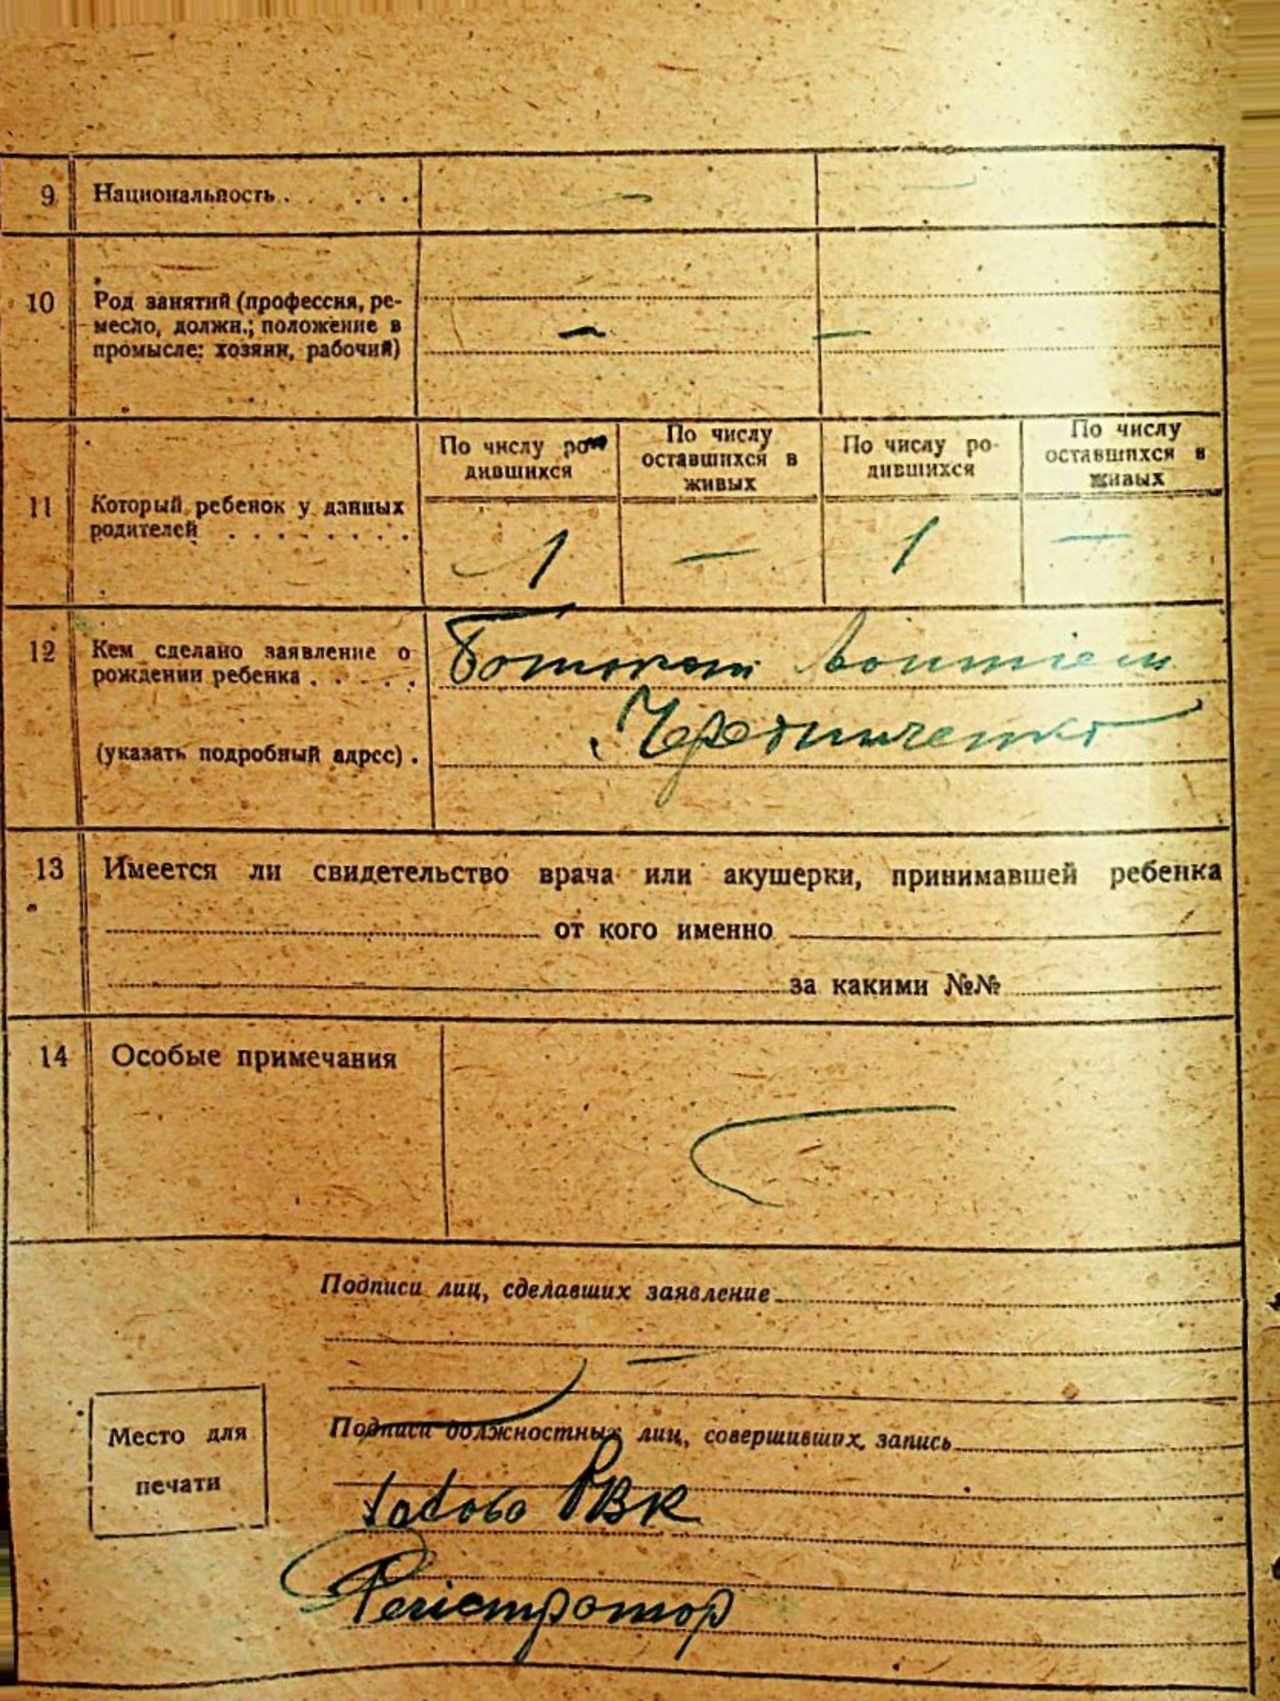 9 Национальность . . . . –
10 Род занятий (профессия, ре-
месло, должн.; положение в – –
промысле: хозяин, рабочий)
По числу ро- дившихся По числу оставшихся в живых По числу ро- дившихся По числу оставшихся в живых
11 Который ребенок у данных
родителей . . . . . . . . 1 – 1 –
12 Кем сделано заявление о
рождении ребенка . . . . .
(указать подробный адрес) . Чередниченко
13 Имеется ли свидетельство врача или акушерки, принимавшей ребенка
от кого именно
за какими №№
14 Особые примечания
Подписи лиц, сделавших заявление
–
Подписи должностных лиц, совершивших запись
Место для
печати
РВК
Регістратор